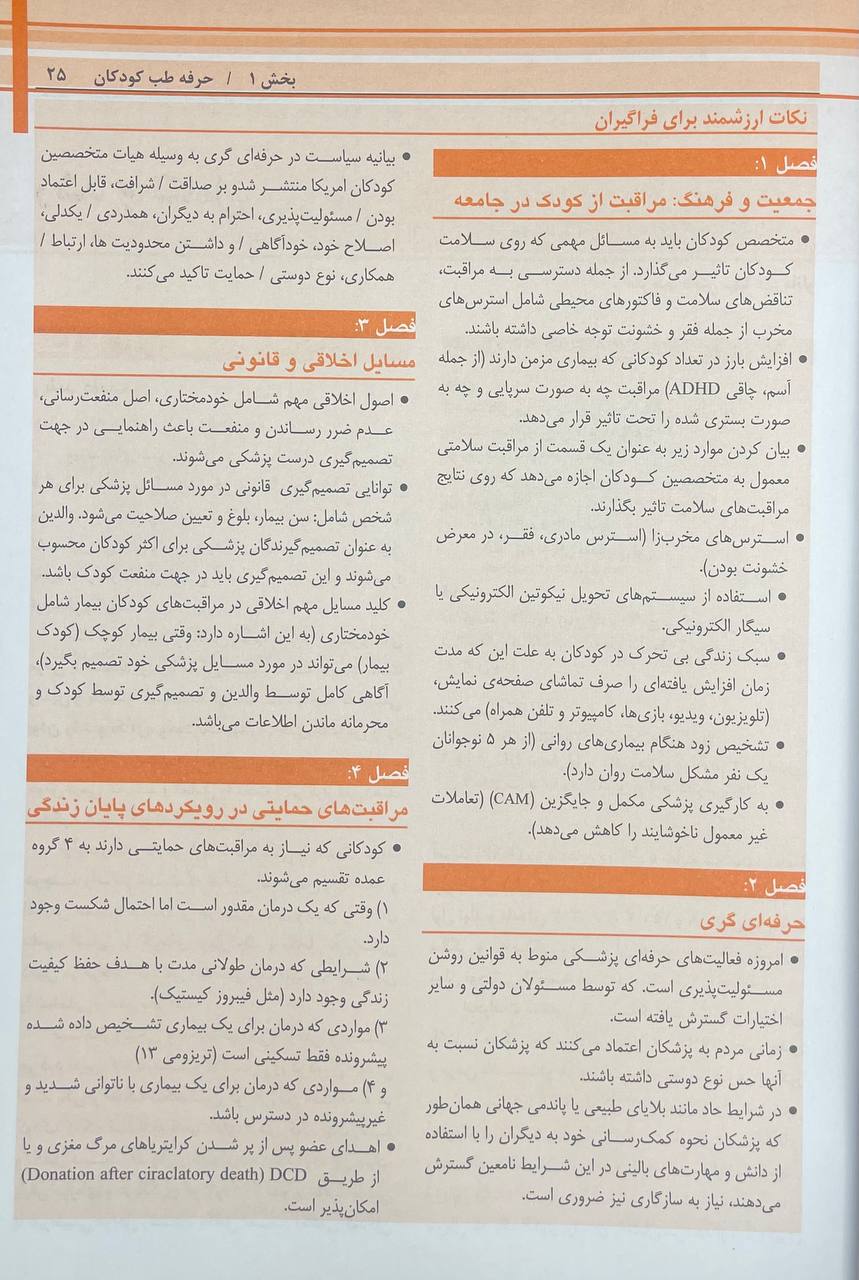 بخش ۱ / حرفه طب کودکان ۲۵
نکات ارزشمند برای فراگیران
فصل ۱:
جمعیت و فرهنگ: مراقبت از کودک در جامعه
● متخصص کودکان باید به مسائل مهمی که روی سلامت
کودکان تاثیر می‌گذارد. از جمله دسترسی به مراقبت،
تناقض‌های سلامت و فاکتورهای محیطی شامل استرس‌های
مخرب از جمله فقر و خشونت توجه خاصی داشته باشند.
● افزایش بارز در تعداد کودکانی که بیماری مزمن دارند (از جمله
آسم، چاقی ADHD) مراقبت چه به صورت سرپایی و چه به
صورت بستری شده را تحت تاثیر قرار می‌دهد.
● بیان کردن موارد زیر به عنوان یک قسمت از مراقبت سلامتی
معمول به متخصصین کودکان اجازه می‌دهد که روی نتایج
مراقبت‌های سلامت تاثیر بگذارند.
● استرس‌های مخرب‌زا (استرس مادری، فقر، در معرض
خشونت بودن).
● استفاده از سیستم‌های تحویل نیکوتین الکترونیکی یا
سیگار الکترونیکی.
● سبک زندگی بی تحرک در کودکان به علت این که مدت
زمان افزایش یافته‌ای را صرف تماشای صفحه‌ی نمایش،
(تلویزیون، ویدیو، بازی‌ها، کامپیوتر و تلفن همراه) می‌کنند.
● تشخیص زود هنگام بیماری‌های روانی (از هر ۵ نوجوانان
یک نفر مشکل سلامت روان دارد).
● به کارگیری پزشکی مکمل و جایگزین (CAM) (تعاملات
غیر معمول ناخوشایند را کاهش می‌دهد).
فصل ۲:
حرفه‌ای گری
● امروزه فعالیت‌های حرفه‌ای پزشکی منوط به قوانین روشن
مسئولیت‌پذیری است. که توسط مسئولان دولتی و سایر
اختیارات گسترش یافته است.
● زمانی مردم به پزشکان اعتماد می‌کنند که پزشکان نسبت به
آنها حس نوع دوستی داشته باشند.
● در شرایط حاد مانند بلایای طبیعی یا پاندمی جهانی همان‌طور
که پزشکان نحوه کمک‌رسانی خود به دیگران را با استفاده
از دانش و مهارت‌های بالینی در این شرایط نامعین گسترش
می‌دهند، نیاز به سازگاری نیز ضروری است.
● بیانیه سیاست در حرفه‌ای گری به وسیله هیات متخصصین
کودکان امریکا منتشر شدو بر صداقت / شرافت، قابل اعتماد
بودن / مسئولیت‌پذیری، احترام به دیگران، همدردی / یکدلی،
اصلاح خود، خودآگاهی / و داشتن محدودیت ها، ارتباط /
همکاری، نوع دوستی / حمایت تاکید می‌کنند.
فصل ۳:
مسایل اخلاقی و قانونی
● اصول اخلاقی مهم شامل خودمختاری، اصل منفعت‌رسانی،
عدم ضرر رساندن و منفعت باعث راهنمایی در جهت
تصمیم‌گیری درست پزشکی می‌شوند.
● توانایی تصمیم‌گیری قانونی در مورد مسائل پزشکی برای هر
شخص شامل: سن بیمار، بلوغ و تعیین صلاحیت می‌شود. والدین
به عنوان تصمیم‌گیرندگان پزشکی برای اکثر کودکان محسوب
می‌شوند و این تصمیم‌گیری باید در جهت منفعت کودک باشد.
● کلید مسایل مهم اخلاقی در مراقبت‌های کودکان بیمار شامل
خودمختاری (به این اشاره دارد: وقتی بیمار کوچک (کودک
بیمار) می‌تواند در مورد مسایل پزشکی خود تصمیم بگیرد)،
آگاهی کامل توسط والدین و تصمیم‌گیری توسط کودک و
محرمانه ماندن اطلاعات می‌باشد.
فصل ۴:
مراقبت‌های حمایتی در رویکردهای پایان زندگی
● کودکانی که نیاز به مراقبت‌های حمایتی دارند به ۴ گروه
عمده تقسیم می‌شوند.
۱) وقتی که یک درمان مقدور است اما احتمال شکست وجود
دارد.
۲) شرایطی که درمان طولانی مدت با هدف حفظ کیفیت
زندگی وجود دارد (مثل فیبروز کیستیک).
۳) مواردی که درمان برای یک بیماری تشخیص داده شده
پیشرونده فقط تسکینی است (تریزومی ۱۳)
و ۴) مواردی که درمان برای یک بیماری با ناتوانی شدید و
غیرپیشرونده در دسترس باشد.
● اهدای عضو پس از پر شدن کرایتریاهای مرگ مغزی و یا
از طریق DCD (Donation after ciraclatory death)
امکان‌پذیر است.